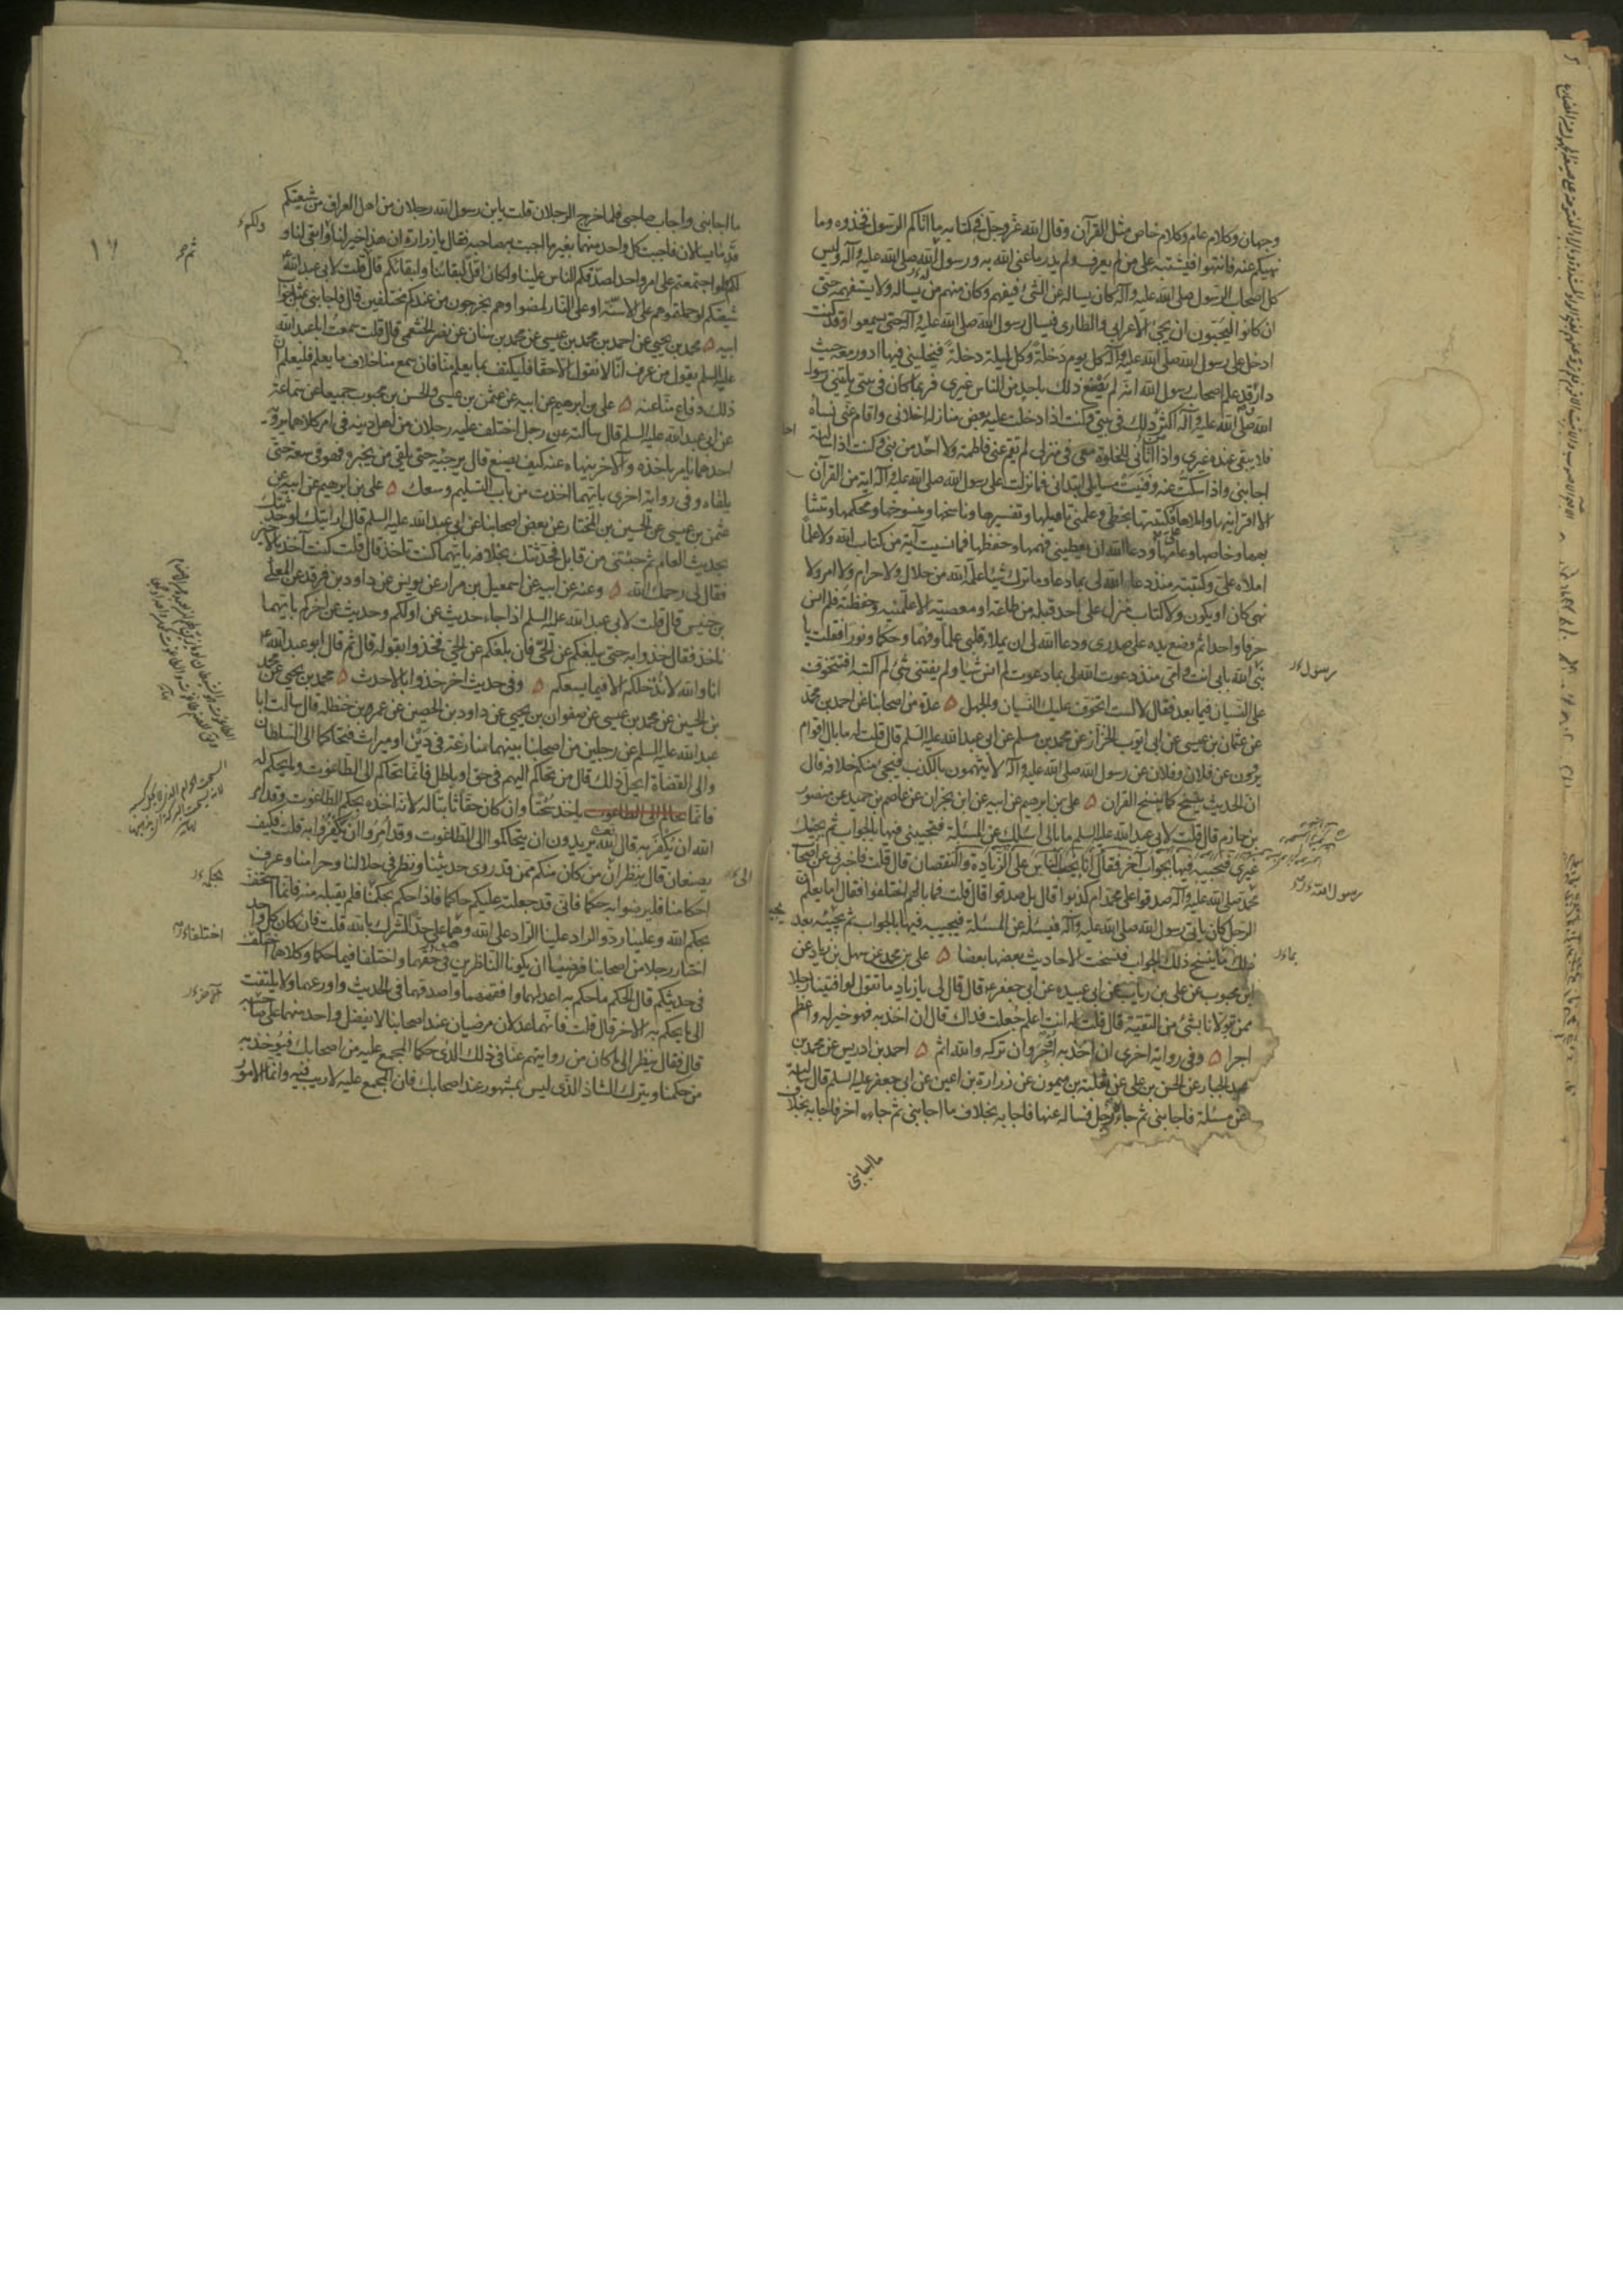 وجهان وكلام عام وكلام خاص مثل القرآن وقال الله عز وجل فى كتابه ما اتاكم الرسول فخذوه وما
نهيكم عنه فانتهوا فيشتبه على من لم يعرف ولم يدر ما عنى الله به ورسول الله صلى الله عليه وآله وليس
كل اصحاب الرسول صلى الله عليه وآله كان يساله عن الشئ فيفهم وكان منهم من يساله ولا يستفهمه حتى
ان كانوا ليحبون ان يجئ الاعرابى والطارى فيسال رسول الله صلى الله عليه وآله حتى يسمعوا وقد كنت
ادخل على رسول الله صلى الله عليه وآله كل يوم دخلة وكل ليلة دخلة فيخلينى فيها ادور معه حيث
دار وقد علم اصحاب رسول الله انه لم يصنع ذلك باحد من الناس غيرى فربما كان فى بيتى ياتينى رسول
الله صلى الله عليه وآله اكثر ذلك فى بيتى وكنت اذا دخلت عليه بعض منازله اخلانى واقام عنى نساه
فلا يبقى عنده غيرى واذا اتانى للخلوة معى فى منزلى لم تقم عنى فاطمة ولا احد من بنى وكنت اذا سالته
اجابنى واذا سكت عنه وفنيت مسايلى ابتدانى فما نزلت على رسول الله صلى الله عليه وآله اية من القرآن
الا اقرانيها واملاها على فكتبتها بخطى وعلمنى تاويلها وتفسيرها وناسخها ومنسوخها ومحكمها ومتشا
بهها وخاصها وعامها ودعا الله ان يعطينى فهمها وحفظها فما نسيت آية من كتاب الله ولا علما
املاه على وكتبته منذ دعا الله لى بما دعا وما ترك شيئا علمه الله من حلال ولا حرام ولا امر ولا
نهى كان او يكون ولا كتاب منزل على احد قبله من طاعة او معصية الا علمنيه وحفظته فلم انس
حرفا واحدا ثم وضع يده على صدرى ودعا الله لى ان يملا قلبى علما وفهما وحكما ونورا فقلت يا
نبى الله بابى انت وامى منذ دعوت الله لى بما دعوت لم انس شيئا ولم يفتنى شئ لم اكتبه افتتخوف
على النسيان فيما بعد فقال لا لست اتخوف عليك النسيان والجهل ه عدة من اصحابنا عن احمد بن محمد
عن عثمان بن عيسى عن ابى ايوب الخزاز عن محمد بن مسلم عن ابى عبد الله عليه السلم قال قلت له ما بال اقوام
يروون عن فلان وفلان عن رسول الله صلى الله عليه وآله لا يتهمون بالكذب فيجئ منكم خلافه قال
ان الحديث ينسخ كما ينسخ القران ه على بن ابرهيم عن ابيه عن ابن ابى نجران عن عاصم بن حميد عن منصور
بن حازم قال قلت لابى عبد الله عليه السلم ما بالى اسئلك عن المسئلة فتجيبنى فيها بالجواب ثم يجيئك
غيرى فتجيبه فيها بجواب آخر فقال انا نجيب الناس على الزيادة والنقصان قال قلت فاخبرنى عن اصحاب
محمد صلى الله عليه وآله صدقوا على محمد ام كذبوا قال بل صدقوا قال قلت فما بالهم اختلفوا فقال اما يعلم ان
الرجل كان ياتى رسول الله صلى الله عليه وآله فيسئله عن المسئلة فيجيبه فيها بالجواب ثم يجيبه بعد
ذلك ما ينسخ ذلك الجواب فنسخت الاحاديث بعضها بعضا ه على بن محمد عن سهل بن زياد عن
ابن محبوب عن على بن رياب عن ابى عبيده عن ابى جعفر قال قال لى يا زياد ما تقول لو افتينا رجلا
ممن يتولانا بشئ من التقية قال قلت له انت اعلم جعلت فداك قال ان اخذ به فهو خير له واعظم
اجرا ه وفى رواية اخرى ان اخذ به اوجر وان تركه والله اثم ه احمد بن ادريس عن محمد بن
عبد الجبار عن الحسن بن على عن ثعلبة بن ميمون عن زرارة بن اعين عن ابى جعفر عليه السلم قال سالته
عن مسئلة فاجابنى ثم جاءه رجل فساله عنها فاجابه بخلاف ما اجابنى ثم جاءه اخر فاجابه بخلاف
ما اجابنى
رسول
رسول الله
بما
ما اجابنى واجاب صاحبى فلما خرج الرجلان قلت يا بن رسول الله رجلان من اهل العراق من شيعتكم
قدما يسالان فاجبت كل واحد منهما بغير ما اجبت به صاحبه فقال يا زرارة ان هذا خير لنا وابقى لنا و
لكم ولو اجتمعتم على امر واحد لصدقكم الناس علينا ولكان اقل لبقائنا ولبقائكم قال قلت لابى عبد الله
شيعتكم لو حملتموهم على الاسنة او على النار لمضوا وهم يخرجون من عندكم مختلفين قال فاجابنى مثل جواب
ابيه ه محمد بن يحيى عن احمد بن محمد بن عيسى عن محمد بن سنان عن نصر الخثعمى قال قلت سمعت ابا عبد الله
عليه السلم يقول من عرف انا لا نقول الا حقا فليكتف بما يعلم منا فان سمع منا خلاف ما يعلم فليعلم ان
ذلك دفاع منا عنه ه على بن ابرهيم عن ابيه عن عثمن بن عيسى والحسن بن محبوب جميعا عن سماعة
عن ابى عبد الله عليه السلم قال سالته عن رجل اختلف عليه رجلان من اهل دينه فى امر كلاهما يرويه
احدهما يامر باخذه والآخر ينهاه عنه كيف يصنع قال يرجئه حتى يلقى من يخبره فهو فى سعة حتى
يلقاه وفى رواية اخرى بايهما اخذت من باب التسليم وسعك ه على بن ابرهيم عن ابيه عن
عثمن بن عيسى عن الحسين بن المختار عن بعض اصحابنا عن ابى عبد الله عليه السلم قال ارايتك لو حدثتك
بحديث العام ثم جئتنى من قابل فحدثتك بخلافه بايهما كنت تاخذ قال قلت كنت آخذ بالاخير
فقال لى رحمك الله ه وعنه عن ابيه عن اسمعيل بن مرار عن يونس عن داود بن فرقد عن المعلى
بن خنيس قال قلت لابى عبد الله عليه السلم اذا جاء حديث عن اولكم وحديث عن اخركم بايهما
ناخذ فقال خذوا به حتى يبلغكم عن الحى فان بلغكم عن الحى فخذوا بقوله قال ثم قال ابو عبد الله
انا والله لا ندخلكم الا فيما يسعكم ه وفى حديث اخر خذوا بالاحدث ه محمد بن يحيى عن محمد
بن الحسين عن محمد بن عيسى عن صفوان بن يحيى عن داود بن الحصين عن عمر بن حنظله قال سالت ابا
عبد الله عليه السلم عن رجلين من اصحابنا بينهما منازعة فى دين او ميراث فتحاكما الى السلطان
والى القضاة ايحل ذلك قال من تحاكم اليهم فى حق او باطل فانما تحاكم الى الطاغوت وما يحكم له
فانما ياخذ سحتا وان كان حقا ثابتا له لانه اخذه بحكم الطاغوت وقد امر
الله ان يكفر به قال الله تعالى يريدون ان يتحاكموا الى الطاغوت وقد امروا ان يكفروا به قلت فكيف
يصنعان قال ينظران من كان منكم ممن قد روى حديثنا ونظر فى حلالنا وحرامنا وعرف
احكامنا فليرضوا به حكما فانى قد جعلته عليكم حاكما فاذا حكم بحكمنا فلم يقبله منه فانما استخف
بحكم الله وعلينا رد والراد علينا الراد على الله وهو على حد الشرك بالله قلت فان كان كل واحد
اختار رجلا من اصحابنا فرضيا ان يكونا الناظرين فى حقهما واختلفا فيما حكما وكلاهما اختلف
فى حديثكم قال الحكم ما حكم به اعدلهما وافقههما واصدقهما فى الحديث واورعهما ولا يلتفت
الى ما يحكم به الاخر قال قلت فانهما عدلان مرضيان عند اصحابنا لا يفضل واحد منهما على صاحبه
قال فقال ينظر الى ما كان من روايتهم عنا فى ذلك الذى حكما المجمع عليه من اصحابك فيؤخذ به
من حكمنا ويترك الشاذ الذى ليس بمشهور عند اصحابك فان المجمع عليه لا ريب فيه وانما الامور
ولكم
الى
بحكم
اختلفا
الآخر